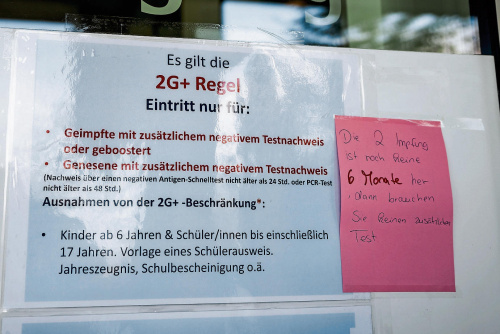 Es gilt die
2G+ Regel
Eintritt nur für:
• Geimpfte mit zusätzlichem negativem Testnachweis
oder geboostert
• Genesene mit zusätzlichem negativem Testnachweis
(Nachweis über einen negativen Antigen-Schnelltest nicht älter als 24 Std. oder PCR-Test
nicht älter als 48 Std.)
Ausnahmen von der 2G+ -Beschränkung*:
• Kinder ab 6 Jahren & Schüler/innen bis einschließlich
17 Jahren. Vorlage eines Schülerausweis.
Jahreszeugnis, Schulbescheinigung o.ä.
Die 2 Impfung
ist noch keine
6 Monate her
, dann brauchen
Sie keinen zusätzlichen
Test